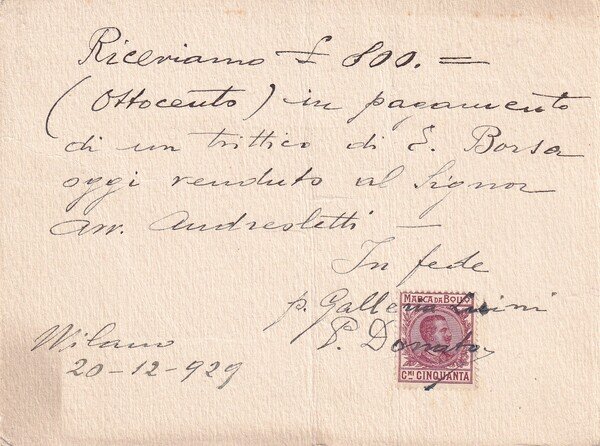 Riceviamo £ 800. =
(Ottocento) in pagamento
di un trittico di E. Borsa
oggi venduto al Signor
avv. Andreoletti —
In fede
p. Galleria
P. Donato
MARCA DA BOLLO
CMI CINQUANTA
Milano
20-12-929